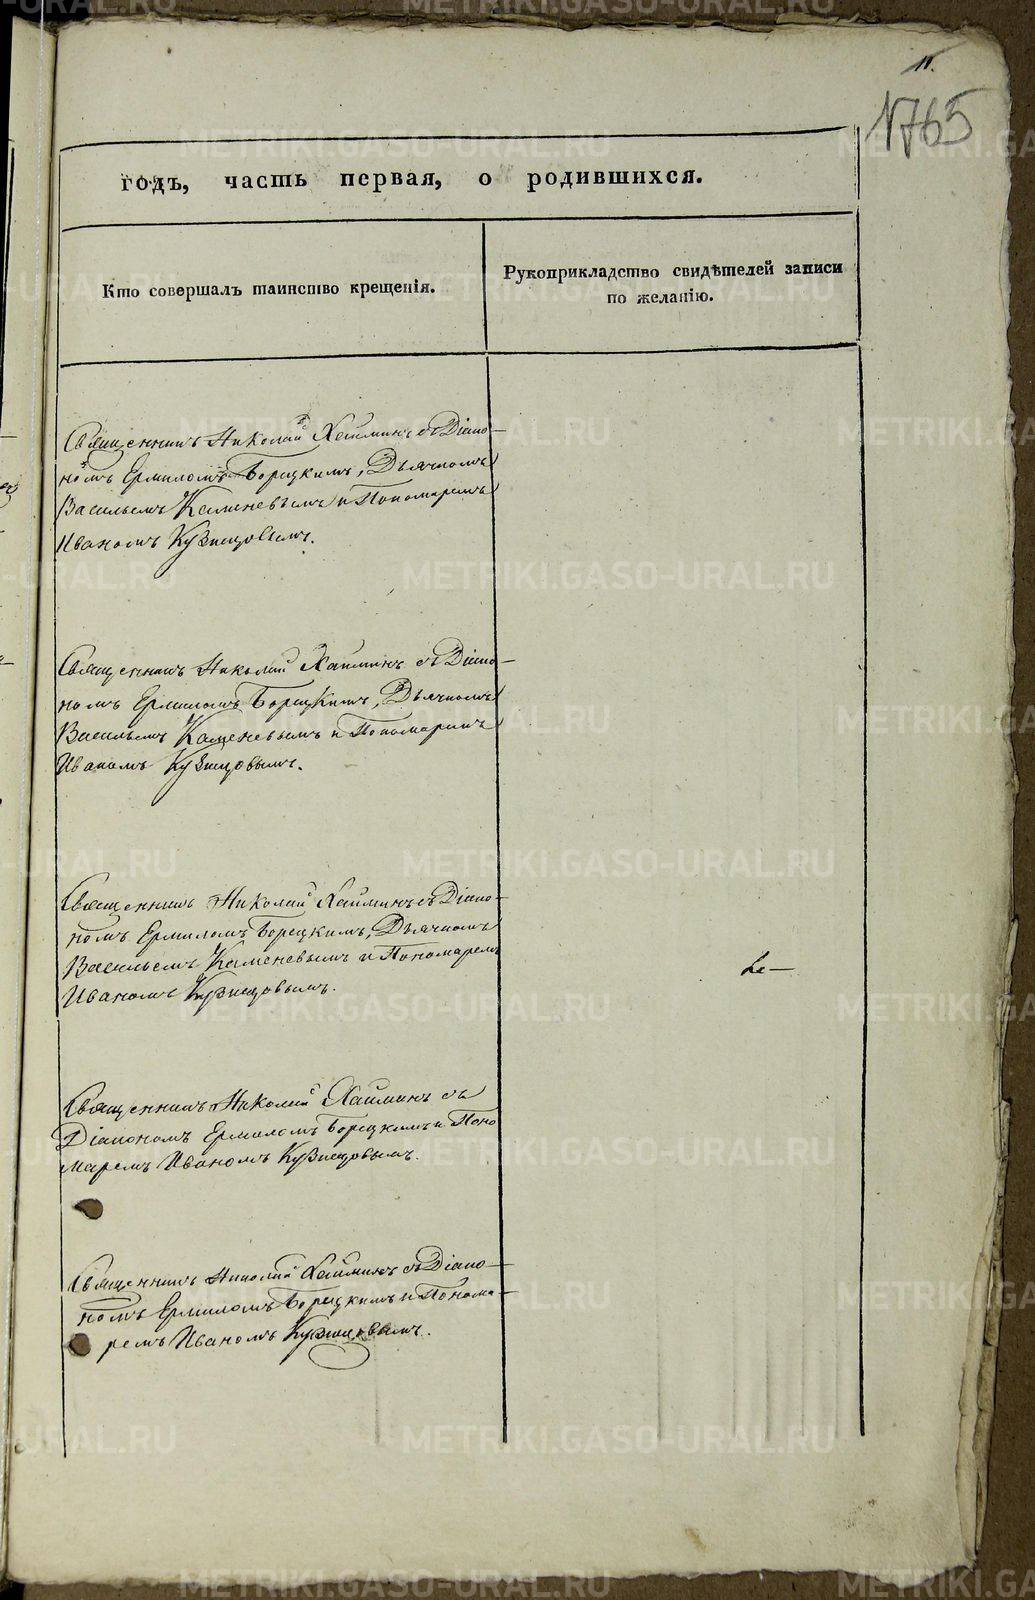 1765
годъ, часть первая, о родившихся.
Кто совершалъ таинство крещенія.
Рукоприкладство свидѣтелей записи
по желанію.
Священникъ Николай Хайминъ съ Діако-
номъ Ермиломъ Борецкимъ, Дьячкомъ
Васильемъ Каменевымъ и Пономаремъ
Иваномъ Кузнецовымъ.
Священникъ Николай Хайминъ съ Діако-
номъ Ермиломъ Борецкимъ, Дьячкомъ
Васильемъ Каменевымъ и Пономаремъ
Иваномъ Кузнецовымъ.
Священникъ Николай Хайминъ съ Діако-
номъ Ермиломъ Борецкимъ, Дьячкомъ
Васильемъ Каменевымъ и Пономаремъ
Иваномъ Кузнецовымъ.
Священникъ Николай Хайминъ съ
Діакономъ Ермиломъ Борецкимъ и Поно
маремъ Иваномъ Кузнецовымъ.
Священникъ Николай Хайминъ съ Діако-
номъ Ермиломъ Борецкимъ и Понома-
ремъ Иваномъ Кузнецовымъ.
METRIKI.GASO-URAL.RU